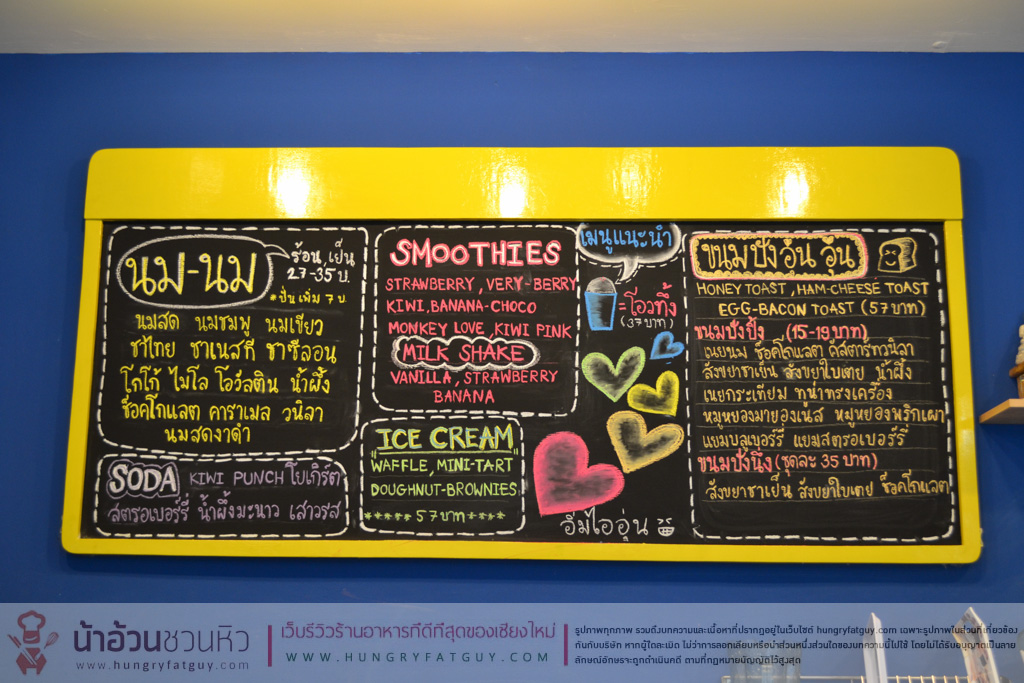 นม-นม
ร้อน,เย็น
27-35 บ.
*ปั่น เพิ่ม 7 บ
นมสด นมชมพู นมเขียว
ชาไทย ชาเนสที ชาซีลอน
โกโก้ ไมโล โอวัลติน น้ำผึ้ง
ช็อคโกแลต คาราเมล วนิลา
นมสดงาดำ
SODA KIWI PUNCH โยเกิร์ต
สตรอเบอร์รี่ น้ำผึ้งมะนาว เสาวรส
SMOOTHIES
STRAWBERRY, VERY-BERRY
KIWI, BANANA-CHOCO
MONKEY LOVE, KIWI PINK
MILK SHAKE
VANILLA, STRAWBERRY
BANANA
ICE CREAM
WAFFLE, MINI-TART
DOUGHNUT-BROWNIES
***** 57บาท ****
เมนูแนะนำ
=โอวทึ้ง
(37บาท)
อิ่มไออุ่น
ขนมปังอุ่น อุ่น
HONEY TOAST, HAM-CHEESE TOAST
EGG-BACON TOAST (57บาท)
ขนมปังปิ้ง (15-19บาท)
เนยนม ช็อคโกแลต คัสตาร์ทวนิลา
สังขยาชาเย็น สังขยาใบเตย น้ำผึ้ง
เนยกระเทียม ทูน่าทรงเครื่อง
หมูหยองมายองเนส หมูหยองพริกเผา
แยมบลูเบอร์รี่ แยมสตรอเบอร์รี่
ขนมปังนึ่ง (ชุดละ 35 บาท)
สังขยาชาเย็น สังขยาใบเตย ช็อคโกแลต
น้าอ้วนชวนหิว
www.hungryfatguy.com
เว็บรีวิวร้านอาหารที่ดีที่สุดของเชียงใหม่
WWW.HUNGRYFATGUY.COM
รูปภาพทุกภาพ รวมถึงบทความและเนื้อหาที่ปรากฏอยู่ในเว็บไซต์ hungryfatguy.com เฉพาะรูปภาพในส่วนที่เกี่ยวข้อง
กับทางบริษัท หากผู้ใดละเมิด ไม่ว่าการลอกเลียนหรือนำส่วนหนึ่งส่วนใดของบทความนี้ไปใช้ โดยไม่ได้รับอนุญาตเป็นลาย
ลักษณ์อักษรจะถูกดำเนินคดี ตามที่กฎหมายบัญญัติไว้สูงสุด